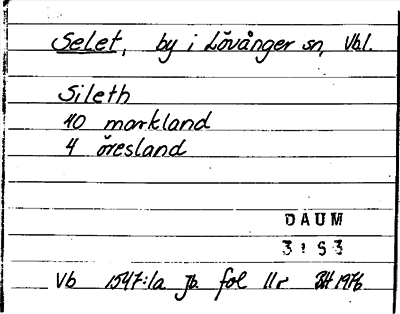 Selet, by i Lövånger sn, Vb.l.
Sileth
10 markland
4 öresland
DAUM
3:S3
Vb 1547:1a Jb. fol 11r BH 1976